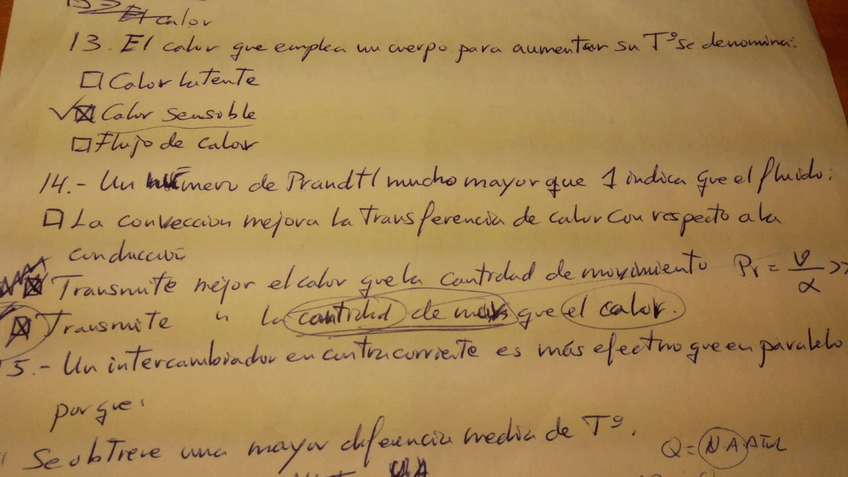 El calor
13. El calor que emplea un cuerpo para aumentar su Tº se denomina:
Calor latente
Calor sensible
Flujo de calor
14.- Un número de Prandtl mucho mayor que 1 indica que el fluido:
La conveccion mejora la transferencia de calor con respecto a la
conducción
Transmite mejor el calor que la cantidad de movimiento Pr = ν/α >>
Transmite " la cantidad de mov que el calor.
5.- Un intercambiador en contracorriente es más efectivo que en paralelo
porque:
Se obtiene una mayor diferencia media de Tº.
Q = UA ΔTML